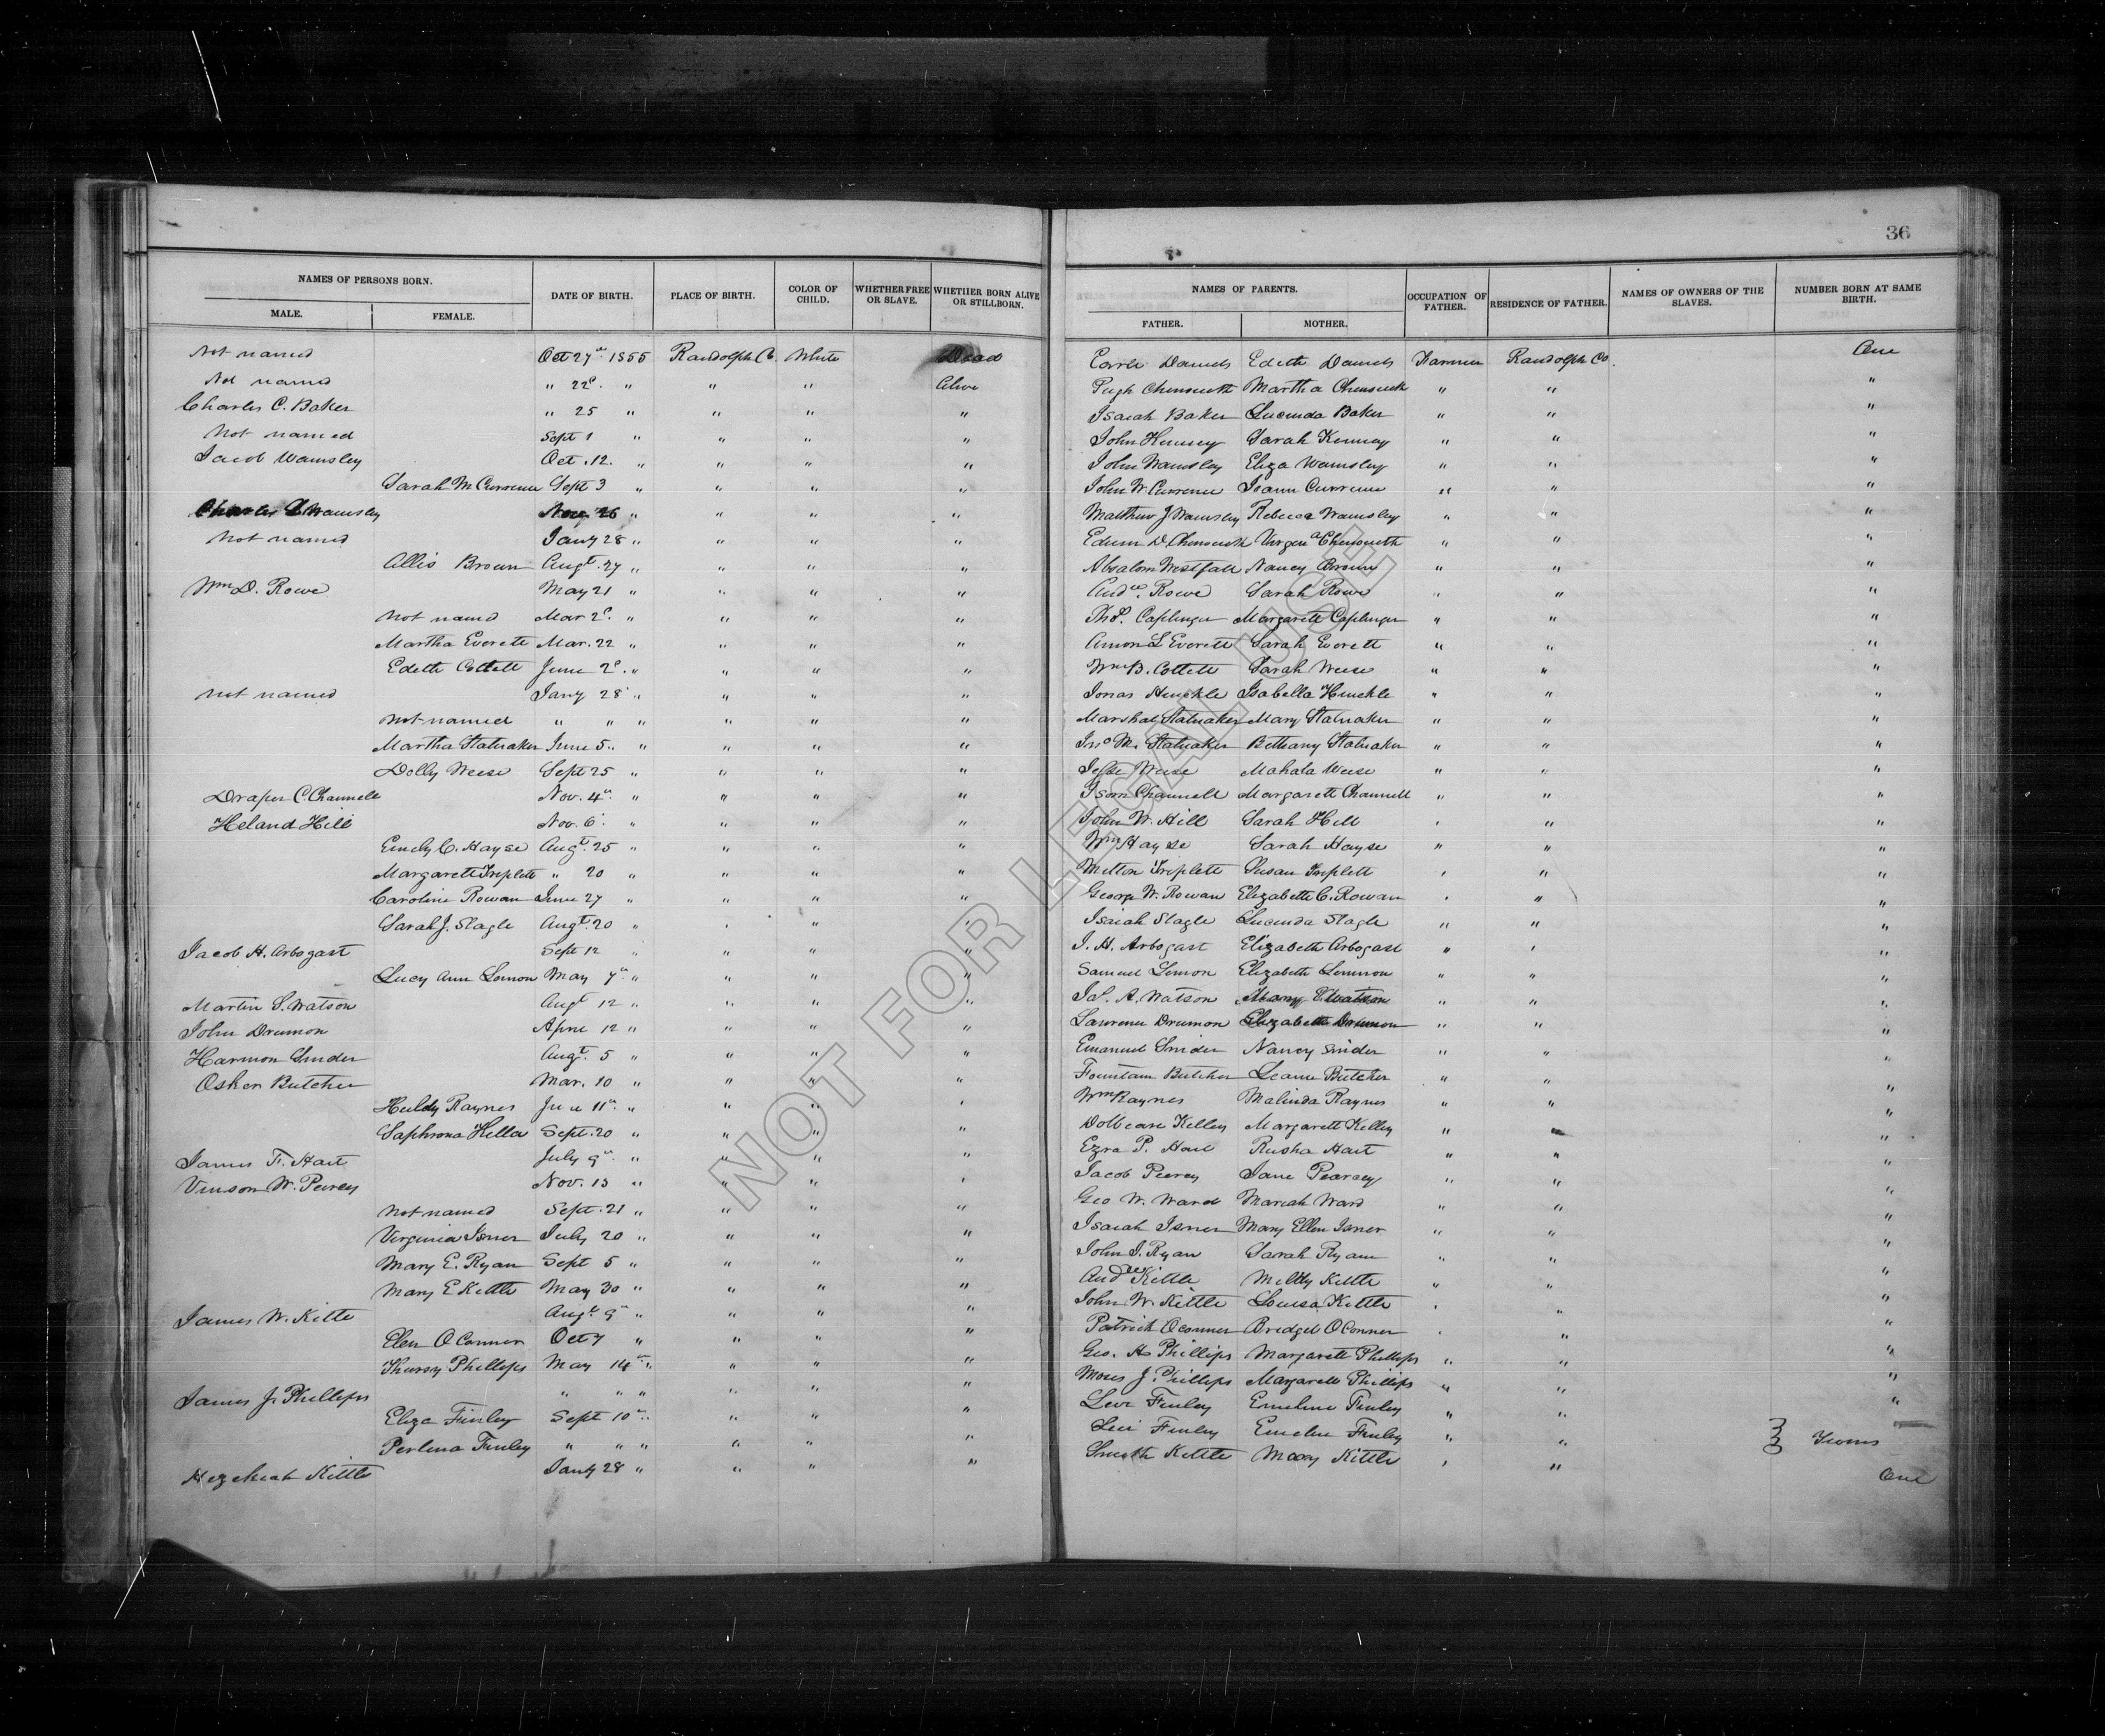 36
NAMES OF PERSONS BORN. DATE OF BIRTH. PLACE OF BIRTH. COLOR OF CHILD. WHETHER FREE OR SLAVE. WHETHER BORN ALIVE OR STILLBORN. NAMES OF PARENTS. OCCUPATION OF FATHER. RESIDENCE OF FATHER. NAMES OF OWNERS OF THE SLAVES. NUMBER BORN AT SAME BIRTH.
MALE. FEMALE. FATHER. MOTHER.
Not named Oct 27" 1855 Randolph Co. White Dead Daniels Edeth Daniels Farmer Randolph Co. One
Not named " 22d. " " " Alive Pugh Chenoweth Martha Chenoweth " " "
Charles C. Baker " 25 " " " " Isaiah Baker Lucinda Baker " " "
Not named Sept 1 " " " " John Sarah Kenney " " "
Jacob Wamsley Oct. 12. " " " " John Wamsley Eliza Wamsley " " "
Sarah M Currence Sept 3 " " " " John W. Currence Currence " " "
Charles Wamsley 26 " " " " Matthew J Wamsley Rebecca Wamsley " " "
Not named Jany 28 " " " " Chenoweth Chenoweth " " "
Allis Brown Augt. 27 " " " " Absalom Westfall Nancy Brown " " "
Wm D. Rowe May 21 " " " " Rowe Sarah Rowe " " "
Not named Mar 2d. " " " " Thos. Caplinger Margarett Caplinger " " "
Martha Everett Mar. 22 " " " " L Everett Sarah Everett " " "
Edeth Cottett June 2d. " " " " Wm B. Cottett Sarah Weese " " "
not named Jany 28 " " " " Jonas Hinckle Isabella Hinckle " " "
Not named " " " " " " Marshal Stalnaker Mary Stalnaker " " "
Martha Stalnaker June 5. " " " " Jno M. Stalnaker Bethany Stalnaker " " "
Dolly Weese Sept 25 " " " " Jesse Weese Mahala Weese " " "
Draper C. Channell Nov. 4" " " " " Isom Channell Margarett Channell " " "
Heland Hill Nov. 6 " " " " John W. Hill Sarah Hill " " "
Emely C. Hayse Augt. 25 " " " " Wm Hayse Sarah Hayse " " "
Margarett Triplett " 20 " " " " Melton Triplett Susan Triplett " " "
Caroline Rowan June 27 " " " " George W. Rowan Elizabeth C. Rowan " " "
Sarah J. Slagle Augt. 20 " " " " Isaiah Slagle Lucinda Slagle " " "
Jacob H. Arbogast Sept 12 " " " " J. H. Arbogast Elizabeth Arbogast " " "
Lucy Ann Lemon May 7" " " " " Samuel Lemon Elizabeth Lemmon " " "
Martin S. Watson Augt 12 " " " " A. Watson Mary Watson " " "
John Drumon 12 " " " " Lawrence Drumon Elizabeth Drumon " " "
Harmon Snider Augt. 5 " " " " Emanuel Snider Nancy Snider " " "
Osker Butcher Mar. 10 " " " " Fountain Butcher Butcher " " "
Huldy Raynes June 11" " " " " Wm Raynes Malinda Raynes " " "
Saphrona Sept. 20 " " " " Kelley Margarett Kelley " " "
James F. Hart July 9" " " " " Ezra P. Hart Hart " " "
Vinson W. Peircy Nov. 13 " " " " Jacob Peercy Jane Pearcey " " "
Not named Sept. 21 " " " " Geo W. Ward Mariah Ward " " "
Verginia Isner July 20 " " " " Isaiah Isner Mary Ellen Isner " " "
Mary E. Ryan Sept 5 " " " " John I. Ryan Sarah Ryan " " "
Mary E Kittle May 30 " " " " Kittle Kittle " " "
James W. Kittle Augt. 9" " " " " John W. Kittle Louisa Kittle " " "
Elen O Connor Oct 7 " " " " Patrick Oconner Bredget OConner " " "
Phillips May 14" " " " " Geo. H Phillips Margarett Phillips " " "
James J. Phillips " " " " " " Moses J. Phillips Margarett Phillips " " "
Eliza Finley Sept 10" " " " " Levi Finley Emeline Finley " " "
Perlina Finley " " " " " " Levi Finley Emeline Finley " " Twins
Hezekiah Kittle Jany 28 " " " " Smith Kittle Mary Kittle " " One
NOT FOR LEGAL USE